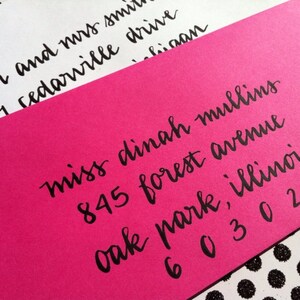 and mrs smith
cedarville drive
miss dinah mullins
845 forest avenue
oak park, illinois
60302